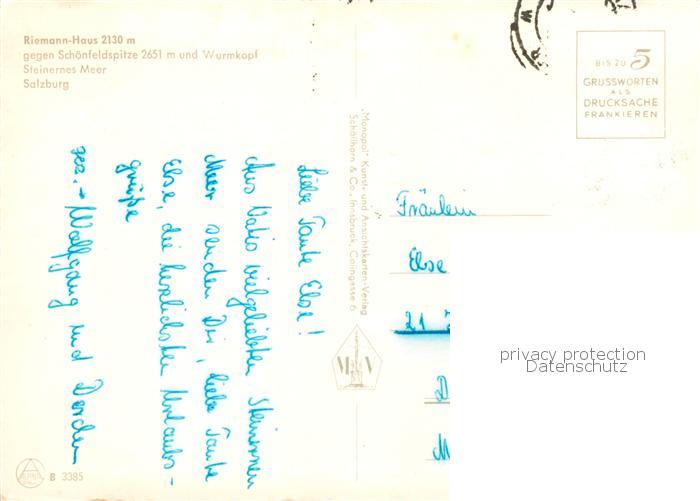 Riemann-Haus 2130 m
gegen Schönfeldspitze 2651 m und Wurmkopf
Steinernes Meer
Salzburg
BIS ZU 5
GRUSSWORTEN
ALS
DRUCKSACHE
FRANKIEREN
Liebe Tante Else!
Aus Vatis vielgeliebten Steinernen
Meer senden Dir, liebe Tante
Else, die herzlichsten Urlaubs-
grüße
gez. Wolfgang und
"Monopol" Kunst- und Ansichtskarten-Verlag
Schöllhorn & Co., Innsbruck, Colingasse 6
M V
Fräulein
Else
21
D
M
privacy protection
Datenschutz
B 3385